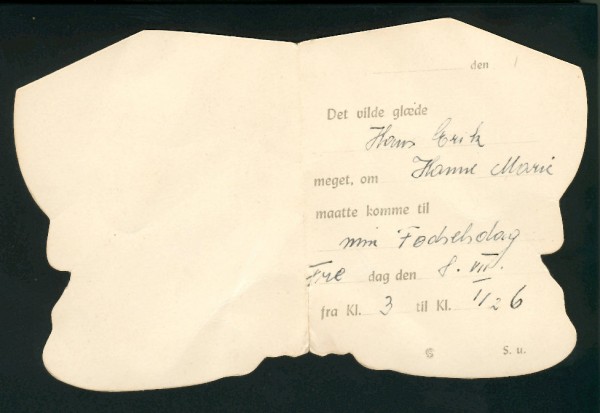 den
Det vilde glæde
Hans Erik
meget, om Hanne Marie
maatte komme til
min Fødselsdag
Fre dag den 8. VII.
fra Kl. 3 til Kl. 1/2 6
S. u.